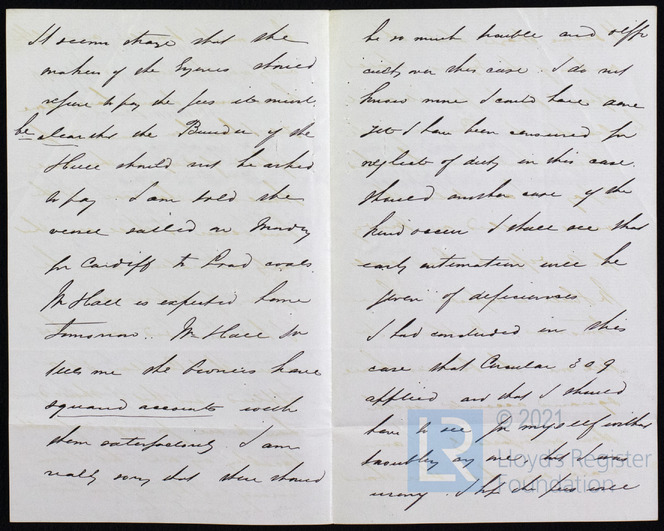 It seems strange that the
makers of the Engines should
refuse to pay the fees it must
be clear that the Builder of the
Hull should not be asked
to pay. I am told the
vessel sailed on Monday
for Cardiff to load coals.
Mr Hall is expected home
tomorrow. Mr Hall Jr
tells me the Owners have
squared accounts with
them satisfactorily. I am
really sorry that there should
be so much trouble and diffi
culty over this case. I do not
know more I could have done
yet I have been censured for
neglect of duty in this case.
Should another case of the
kind occur I shall see that
early intimation will be
given of deficiencies
I had concluded in this
case that Circular 309
applied and that I should
have to see for myself without
troubling any one, but I was
wrong. I
© 2021
LR
Lloyd's Register
Foundation